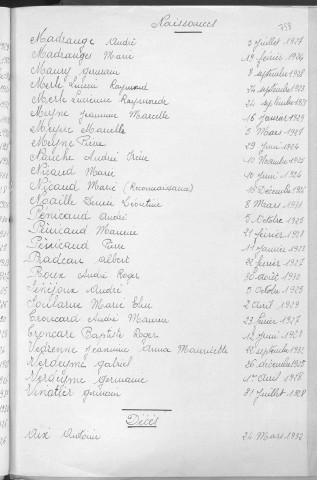 Naissances
758
Madrange André 3 juillet 1927
Madranges Marie 19 février 1924
Maury germain 8 septembre 1928
Merle Lucien Raymond 24 septembre 1923
Merle Lucienne Raymonde 24 septembre 1923
Meyne Jeannine Marcelle 16 janvier 1929
Meyne Marcelle 5 Mars 1927
Meyne Pierre 29 juin 1924
Nauche André Irène 10 Novembre
Nicaud Marie 10 juin 1924
Nicaud Marie (Reconnaissance) 15 Décembre
Noaille Denise Léontine 8 Mars 1931
Pénicaud André 5 Octobre 1925
Pénicaud Maurice 21 février 1928
Pénicaud Pierre 11 janvier 1922
Pradeau Albert 22 février 1927
Roux André Roger 30 août 1932
Sénéjoux André 5 Octobre 1925
Soularue Marie 2 Avril 1929
Troncard André Maurice 23 février 1927
Troncard Baptiste Roger 12 juin 1921
Vedrenne Jeannine Anna Mauricette septembre 1932
Verdeyme gabriel 26 décembre
Verdeyme germaine 1er Avril 1928
Vinatier germain 31 juillet 1928
Décès
Aix Antoine 24 Mars 1932